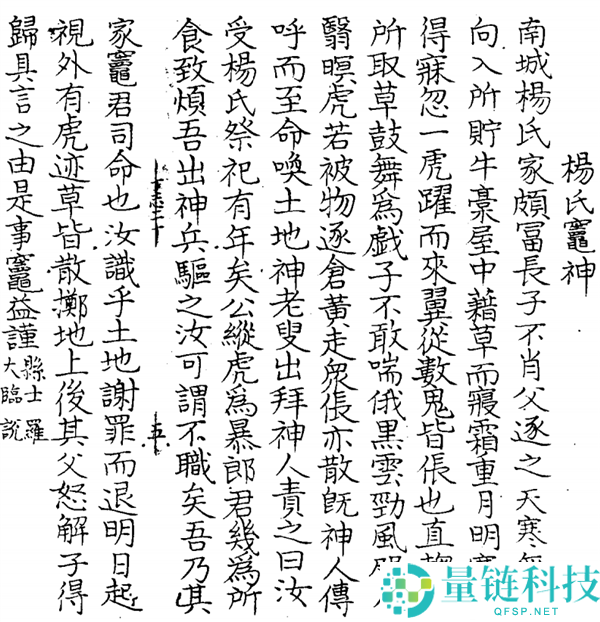 楊氏竈神
南城楊氏家頗冨長子不肖父逐之天寒
向入所貯牛藁屋中藉草而寢霜重月明
得寐忽一虎躍而來翼從數鬼皆倀也直
所取草鼓舞爲戲子不敢喘俄黑雲勁風
翳暝虎若被物逐倉黃走衆倀亦散旣神人傳
呼而至命喚土地神老叟出拜神人責之曰汝
受楊氏祭祀有年矣公縱虎爲暴郎君幾爲所
食致煩吾出神兵驅之汝可謂不職矣吾乃其
五
家竈君司命也汝識乎土地謝罪而退明日起
視外有虎迹草皆散擲地上後其父怒解子得
歸具言之由是事竈益謹
縣士羅
大臨說
量链科技
QFSP.NET